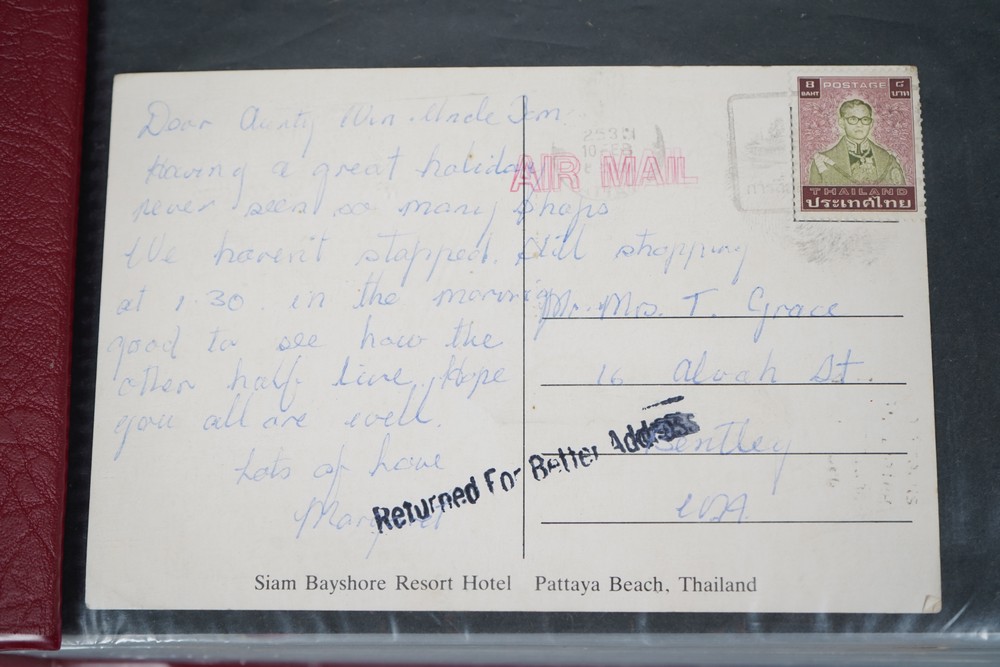 Dear Aunty Win. Uncle Tom.
Having a great holiday
never seen so many shops
We haven't stopped. Still shopping
at 1.30. in the morning
good to see how the
other half live. Hope
you all are well.
Lots of love
Margaret
AIR MAIL
10 FEB
8 POSTAGE ๘
BAHT บาท
THAILAND
ประเทศไทย
Mr. Mrs. T. Grace
16 Alwah St.
Bentley
Returned For Better Address
Siam Bayshore Resort Hotel Pattaya Beach, Thailand